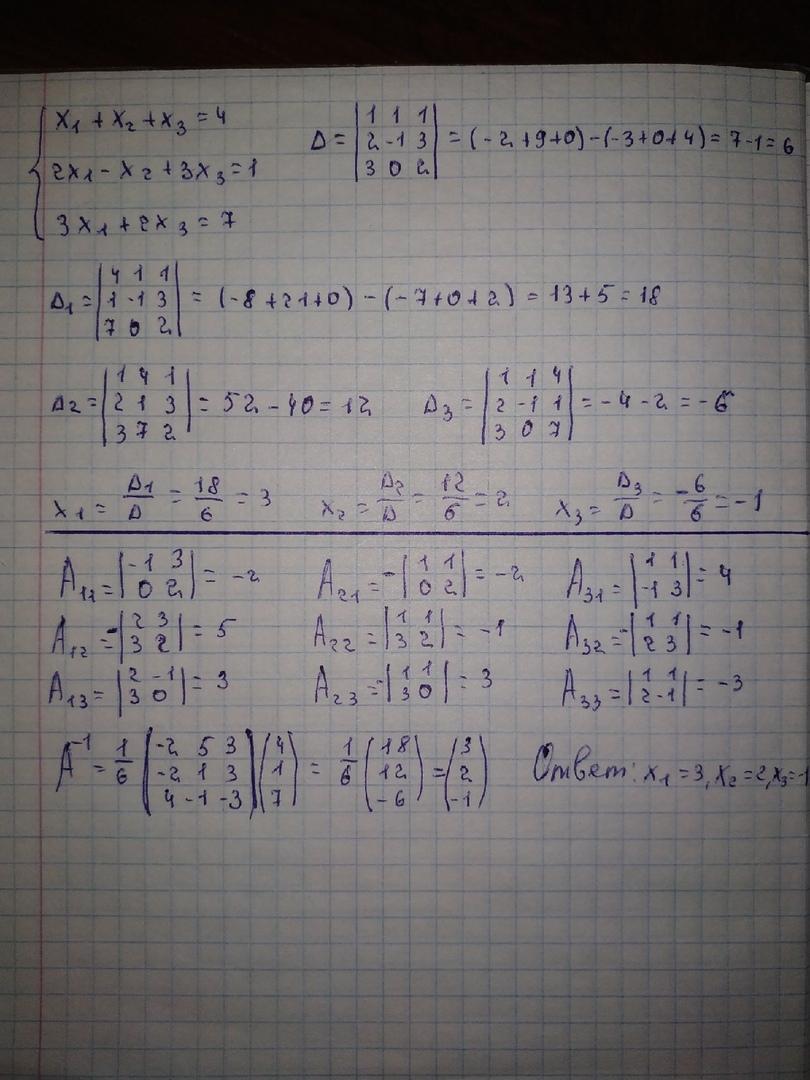 { x₁ + x₂ + x₃ = 4
2x₁ - x₂ + 3x₃ = 1
3x₁ + 2x₃ = 7
Δ = |1 1 1; 2 -1 3; 3 0 2| = (-2+9+0)-(-3+0+4) = 7-1 = 6
Δ₁ = |4 1 1; 1 -1 3; 7 0 2| = (-8+21+0)-(-7+0+2) = 13+5 = 18
Δ₂ = |1 4 1; 2 1 3; 3 7 2| = 52-40 = 12 Δ₃ = |1 1 4; 2 -1 1; 3 0 7| = -4-2 = -6
x₁ = Δ₁/Δ = 18/6 = 3 x₂ = Δ₂/Δ = 12/6 = 2 x₃ = Δ₃/Δ = -6/6 = -1
A₁₁ = |-1 3; 0 2| = -2 A₂₁ = -|1 1; 0 2| = -2 A₃₁ = |1 1; -1 3| = 4
A₁₂ = -|2 3; 3 2| = 5 A₂₂ = |1 1; 3 2| = -1 A₃₂ = -|1 1; 2 3| = -1
A₁₃ = |2 -1; 3 0| = 3 A₂₃ = -|1 1; 3 0| = 3 A₃₃ = |1 1; 2 -1| = -3
A⁻¹ = 1/6 (-2 5 3; -2 1 3; 4 -1 -3)(4; 1; 7) = 1/6 (18; 12; -6) = (3; 2; -1) Ответ: x₁ = 3, x₂ = 2, x₃ = -1